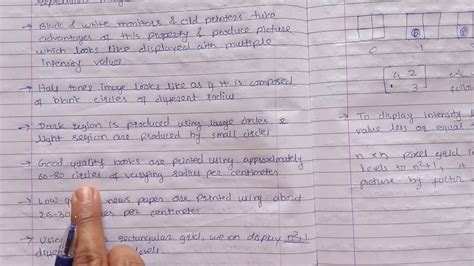 → Black & white monitors & old printers take
advantages of this property & produce picture
which looks like displayed with multiple
intensity values
→ Half tones image looks like as if it is composed
of blank circles of different radius
→ Dark region is produced using large circles &
light region are produced by small circles
→ Good quality books are printed using approximately
60-80 circles of varying radius per centimeter
→ Low news paper are printed using about
per centimeter
→ Using rectangular grid, we can display n²+1
0 1
4 2
. 3
→ To display intensity
value less or equal
n x n pixel grid
levels to n²+1
picture by factor